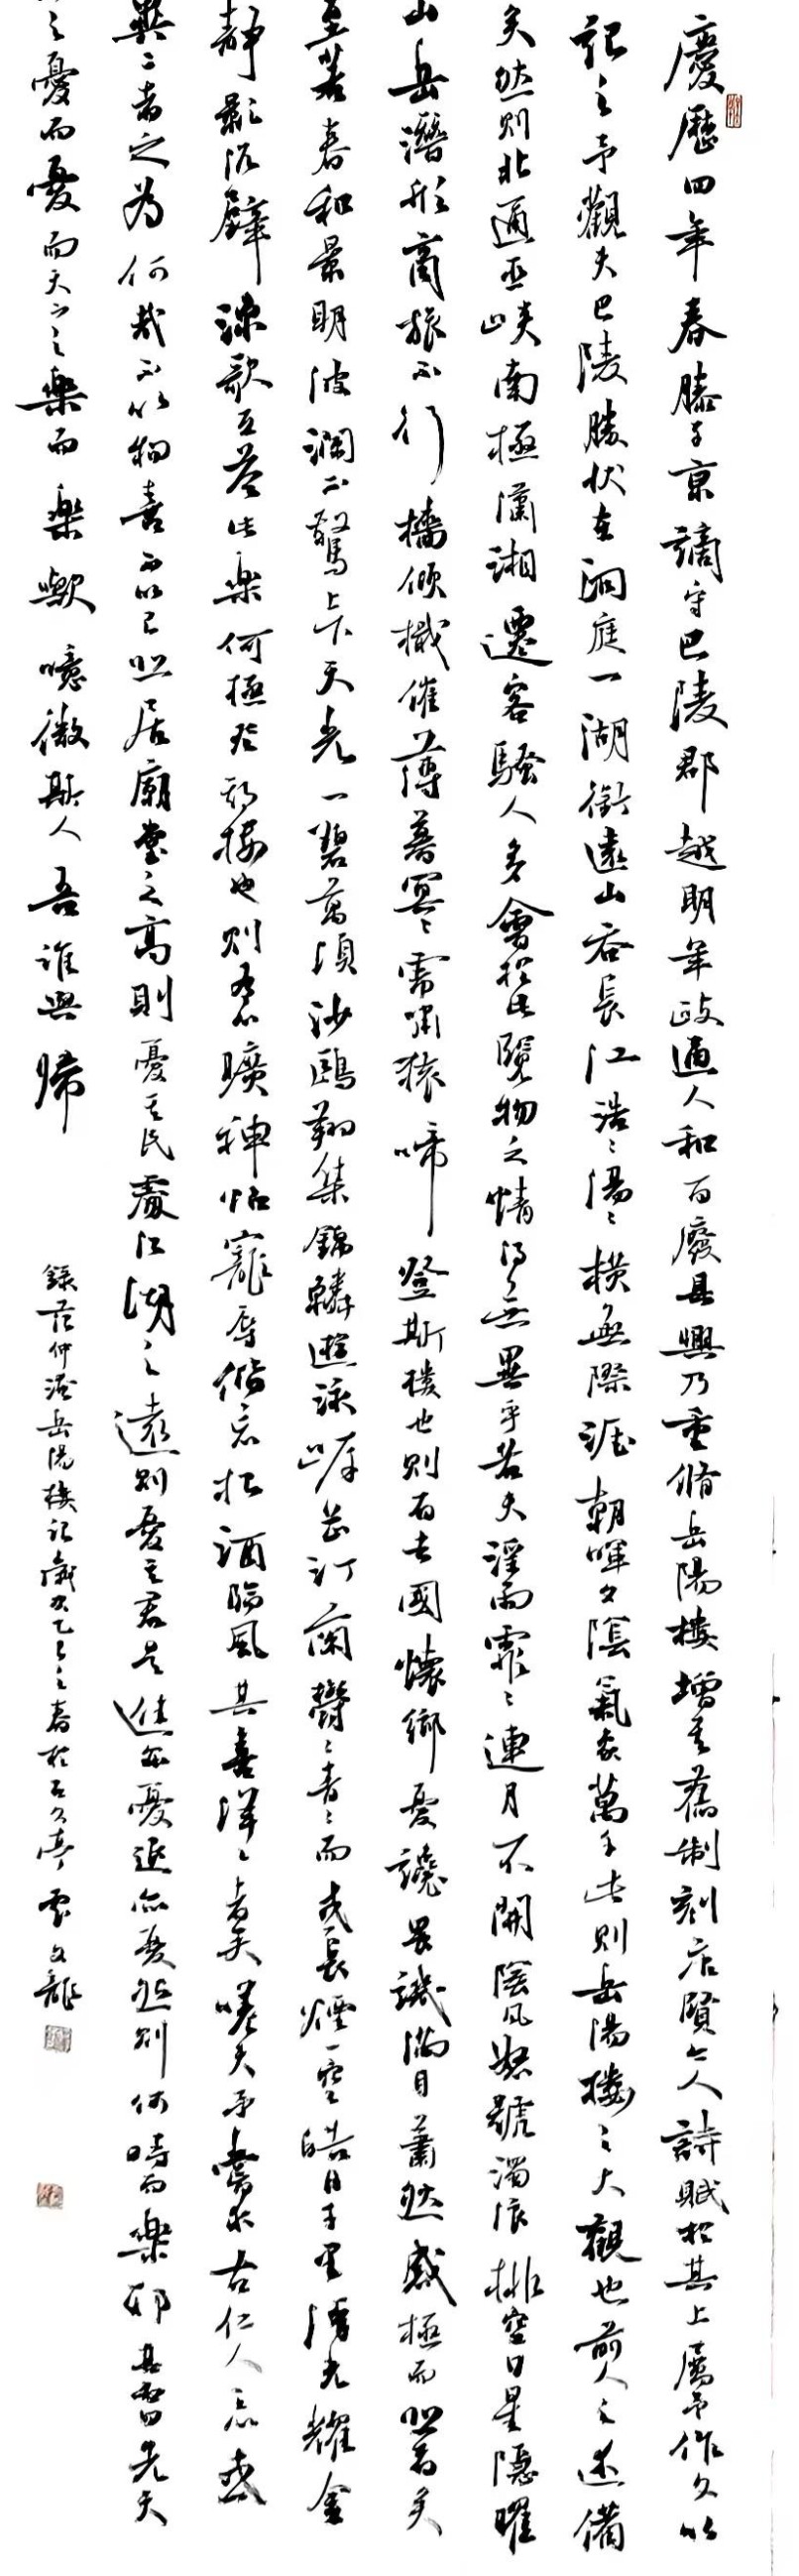 慶歷四年春滕子京謫守巴陵郡越明年政通人和百廢具興乃重脩岳陽樓增其舊制刻唐賢今人詩賦於其上屬予作文以
記之予觀夫巴陵勝狀在洞庭一湖銜遠山吞長江浩浩湯湯橫無際涯朝暉夕陰氣象萬千此則岳陽樓之大觀也前人之述備
矣然則北通巫峽南極瀟湘遷客騷人多會於此覽物之情得無異乎若夫淫雨霏霏連月不開陰風怒號濁浪排空日星隱曜
山岳潛形商旅不行檣傾檝催薄暮冥冥虎嘯猿啼登斯樓也則有去國懷鄉憂讒畏譏滿目蕭然感極而悲者矣
至若春和景明波瀾不驚上下天光一碧萬頃沙鷗翔集錦鱗遊泳岸芷汀蘭鬱鬱青青而或長煙一空皓月千里浮光耀金
靜影沉璧漁歌互答此樂何極登斯樓也則有心曠神怡寵辱偕忘把酒臨風其喜洋洋者矣嗟夫予嘗求古仁人之心或
異二者之為何哉不以物喜不以己悲居廟堂之高則憂其民處江湖之遠則憂其君是進亦憂退亦憂然則何時而樂耶其必曰先天
下之憂而憂而天下之樂而樂歟噫微斯人吾誰與歸
錄范仲淹岳陽樓記歲次乙巳之春於